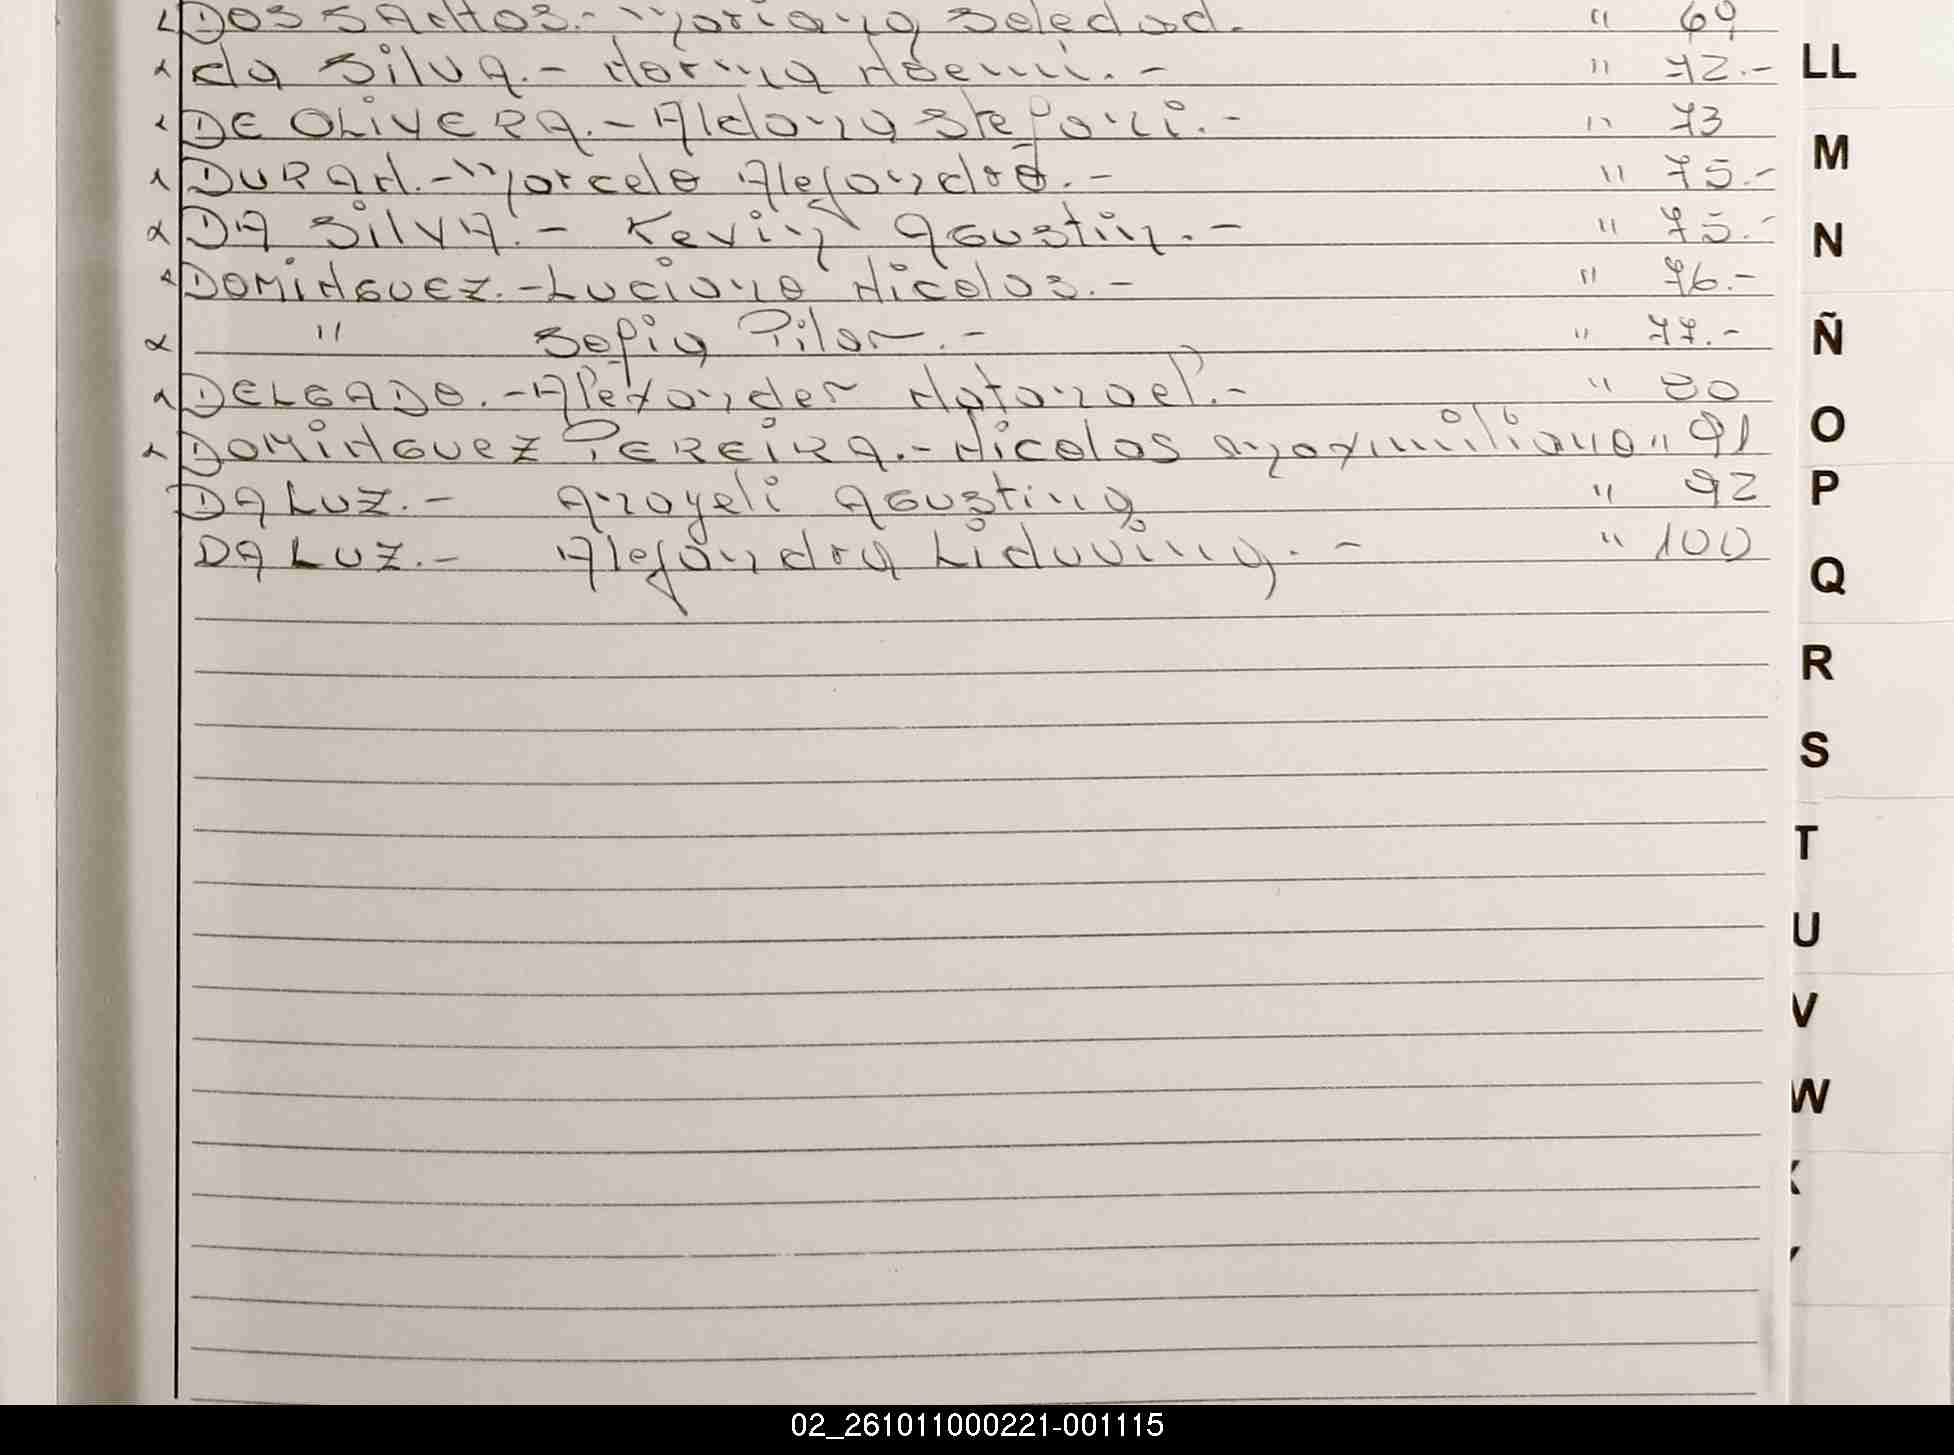 DOS SANTOS.- Mariana Soledad. " 69
da Silva.- Norma Noemi.- " 72.-
DE OLIVERA.- Aldana Stefani.- " 73
DURAN.- Marcelo Alejandro.- " 75.-
DA SILVA.- Kevin Agustin.- " 75.-
DOMINGUEZ.- Luciano Nicolas.- " 76.-
" Sofia Pilar.- " 77.-
DELGADO.- Alexander Natanael.- " 80
DOMINGUEZ PEREIRA.- Nicolas Maximiliano " 91
DA LUZ.- Anayeli Agustina " 92
DA LUZ.- Alejandra Liduvina.- " 100
LL
M
N
Ñ
O
P
Q
R
S
T
U
V
W
02_261011000221-001115